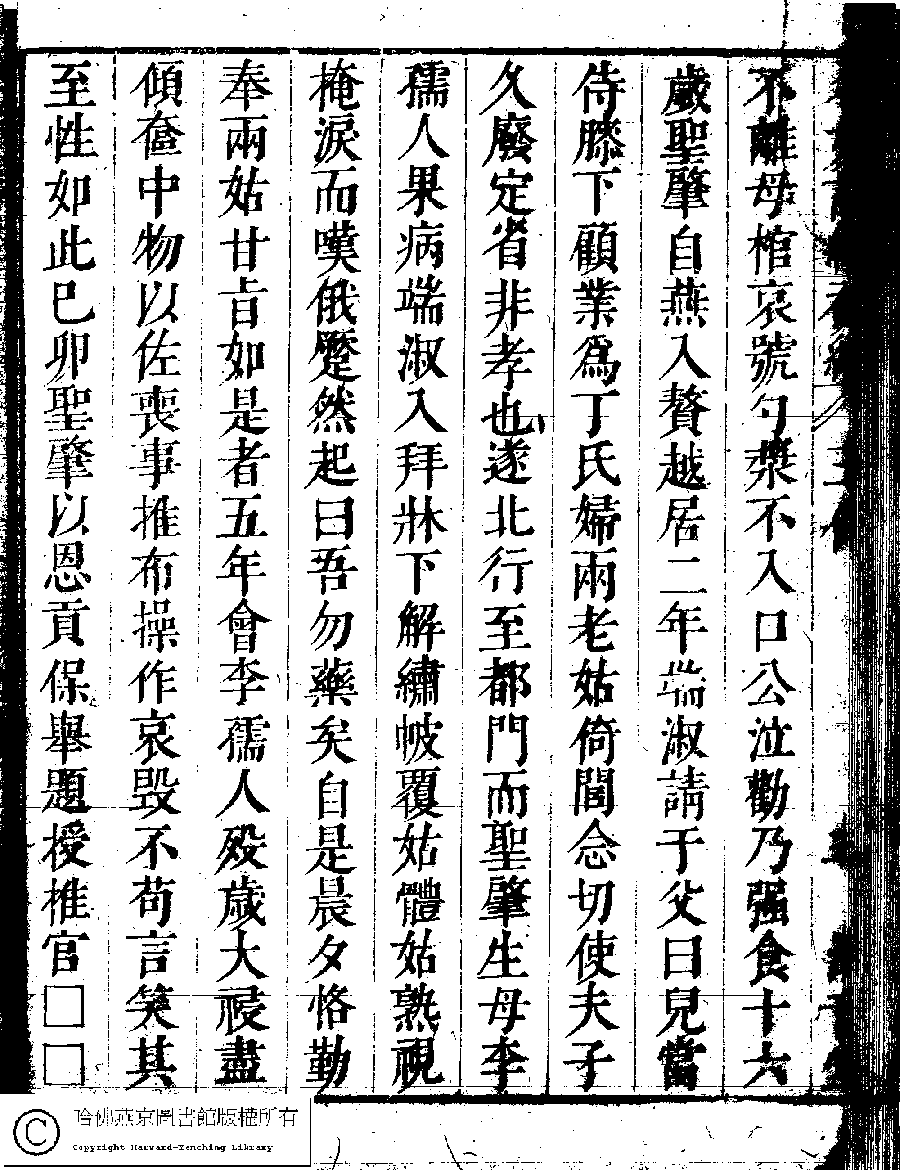 不離母棺哀號勺漿不入口公泣勸乃强食十六
歲聖肇自燕入贅越居二年端淑請于父曰兒當
侍膝下顧業爲丁氏婦兩老姑倚閭念切使夫子
久廢定省非孝也遂北行至都門而聖肇生母李
孺人果病端淑入拜牀下解繡帔覆姑體姑熟視
掩淚而嘆俄蹙然起曰吾勿藥矣自是晨夕恪勤
奉兩姑甘旨如是者五年會李孺人殁歲大祲盡
傾奩中物以佐喪事推布操作哀毀不苟言笑其
至性如此巳卯聖肇以恩貢保舉題授推官□□
哈佛燕京圖書館版權所有
Copyright Harvard-Yenching Library